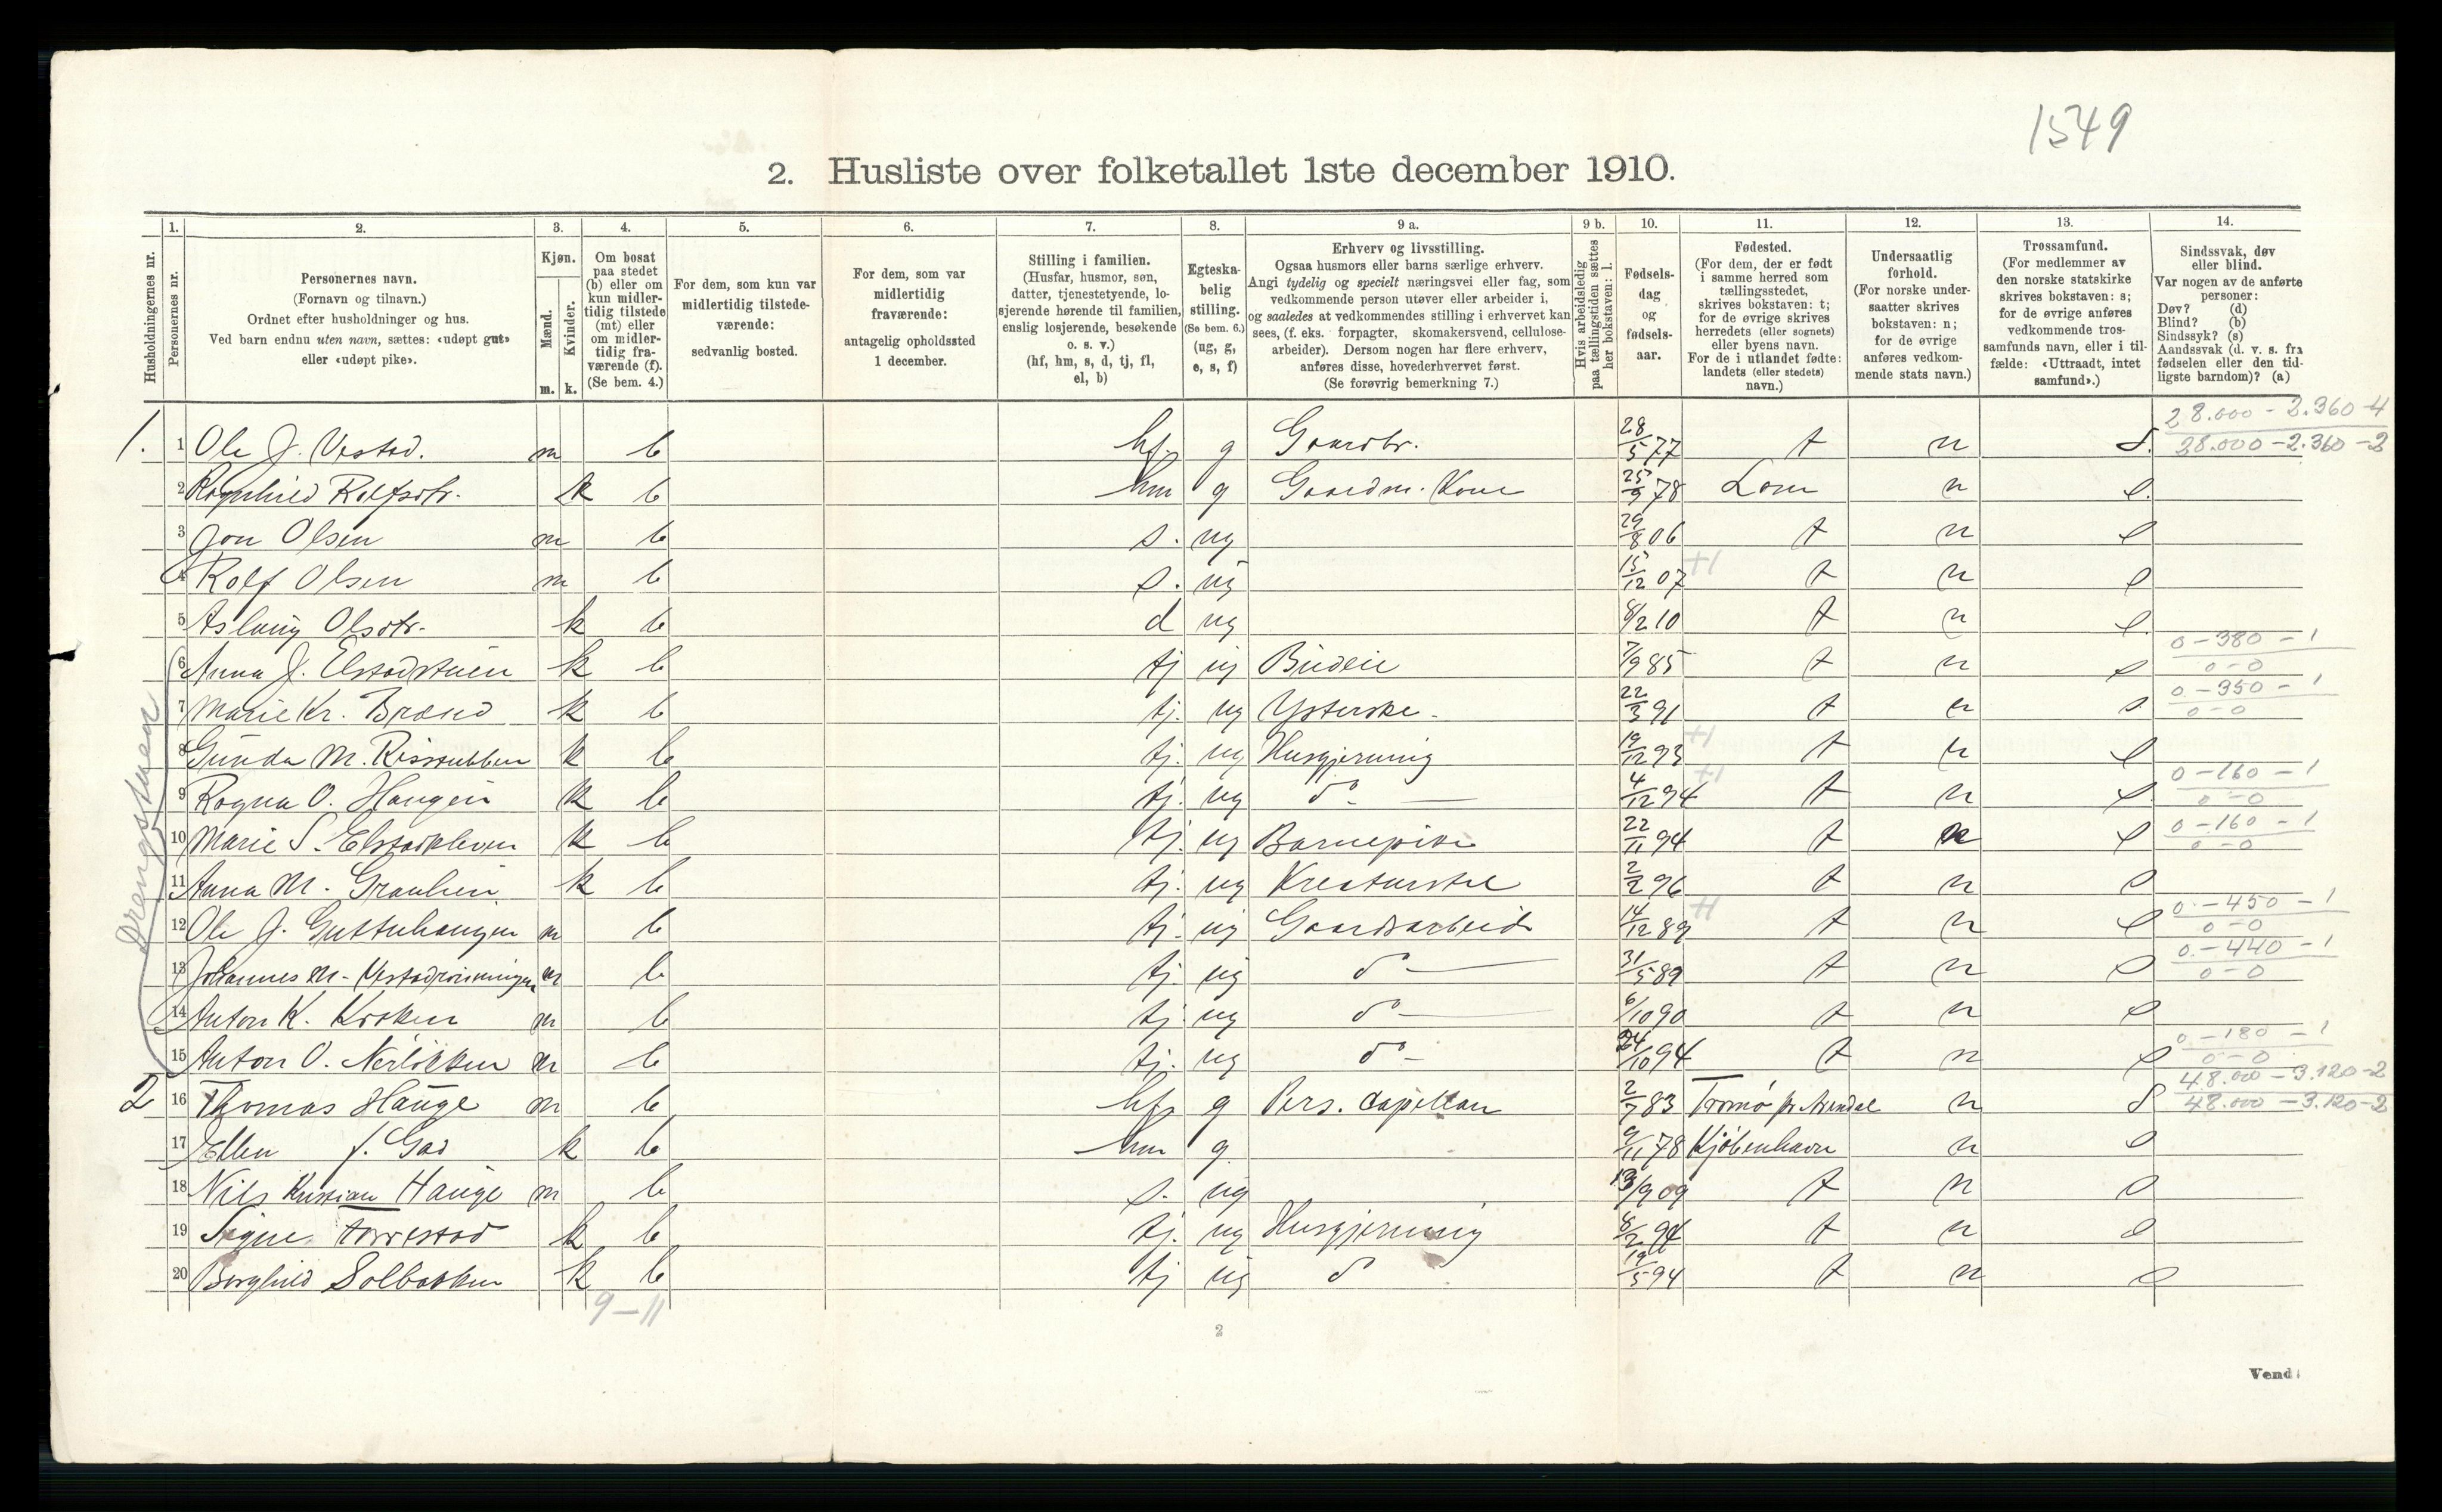 1549
2. Husliste over folketallet 1ste december 1910.
Husholdningernes nr.
1. Personernes nr.
2. Personernes navn. (Fornavn og tilnavn.) Ordnet efter husholdninger og hus. Ved barn endnu uten navn, sættes: «udøpt gut» eller «udøpt pike».
3. Kjøn. Mænd. m. Kvinder. k.
4. Om bosat paa stedet (b) eller om kun midlertidig tilstede (mt) eller om midlertidig fraværende (f). (Se bem. 4.)
5. For dem, som kun var midlertidig tilstedeværende: sedvanlig bosted.
6. For dem, som var midlertidig fraværende: antagelig opholdssted 1 december.
7. Stilling i familien. (Husfar, husmor, søn, datter, tjenestetyende, losjerende hørende til familien, enslig losjerende, besøkende o. s. v.) (hf, hm, s, d, tj, fl, el, b)
8. Egteskabelig stilling. (Se bem. 6.) (ug, g, e, s, f)
9 a. Erhverv og livsstilling. Ogsaa husmors eller barns særlige erhverv. Angi tydelig og specielt næringsvei eller fag, som vedkommende person utøver eller arbeider i, og saaledes at vedkommendes stilling i erhvervet kan sees, (f. eks. forpagter, skomakersvend, cellulose-arbeider). Dersom nogen har flere erhverv, anføres disse, hovederhvervet først. (Se forøvrig bemerkning 7.)
9 b. Hvis arbeidsledig paa tællingstiden sættes her bokstaven: l.
10. Fødselsdag og fødselsaar.
11. Fødested. (For dem, der er født i samme herred som tællingsstedet, skrives bokstaven: t; for de øvrige skrives herredets (eller sognets) eller byens navn. For de i utlandet fødte: landets (eller stedets) navn.)
12. Undersaatlig forhold. (For norske undersaatter skrives bokstaven: n; for de øvrige anføres vedkommende stats navn.)
13. Trossamfund. (For medlemmer av den norske statskirke skrives bokstaven: s; for de øvrige anføres vedkommende trossamfunds navn, eller i tilfælde: «Uttraadt, intet samfund».)
14. Sindssvak, døv eller blind. Var nogen av de anførte personer: Døv? (d) Blind? (b) Sindssyk? (s) Aandssvak (d. v. s. fra fødselen eller den tidligste barndom)? (a)
28.000 - 2.360 - 4
1. 1 Ole J. Vestad. m b hf. g Gaardbr. 28/5 77 t n s. 28.000 - 2.360 - 2
2 Ragnhild Rolfsdtr. k b hm g Gaardm. Kone 25/9 78 Lom n s.
3 Jon Olsen m b s. ug 29/8 06 t n s
4 Rolf Olsen m b s. ug 15/12 07 +1 t n s
5 Aslaug Olsdtr. k b d ug 8/2 10 t n s
Drengstuen
6 Anna J. Elstadstuen k b tj ug Budeie 7/9 85 t n s 0 - 380 - 1 0 - 0
7 Marie Kr. Brænd k b tj. ug Ysterske. 22/3 91 t n s 0 - 350 - 1 0 - 0
8 Gunda M. Risstubben k b tj. ug Husgjerning 19/12 93 +1 t n s
9 Ragna O. Haugen k b tj. ug do 4/12 94 +1 t n s 0 - 160 - 1 0 - 0
10 Marie S. Elstadkleven k b tj. ug Barnepike 22/11 94 t n s 0 - 160 - 1 0 - 0
11 Anna M. k b tj. ug Kreaturstel 2/2 96 t n s
12 Ole J. m b tj. ug Gaardsarbeide 14/12 89 +1 t n s 0 - 450 - 1 0 - 0
13 Johannes M. m b tj. ug do 31/5 89 t n s 0 - 440 - 1 0 - 0
14 Anton K. Kroken m b tj. ug do 6/10 90 t n s
15 Anton O. Nerløkken m b tj. ug do 24/10 94 t n s 0 - 180 - 1 0 - 0
48.000 - 3.120 - 2
2 16 Thomas Hauge m b hf g Pers. Capellan 2/7 83 Tromø pr Arendal n s 48.000 - 3.120 - 2
17 Ellen f. Gad k b hm g 9/11 78 Kjøbenhavn n s
18 Nils Kristian Hauge m b s. ug 13/9 09 t n s
19 Signe Forrestad k b tj. ug Husgjerning 8/2 94 t n s
20 Borghild Solbakken k b tj ug do 19/5 94 t n s
9 - 11
2
Vend!